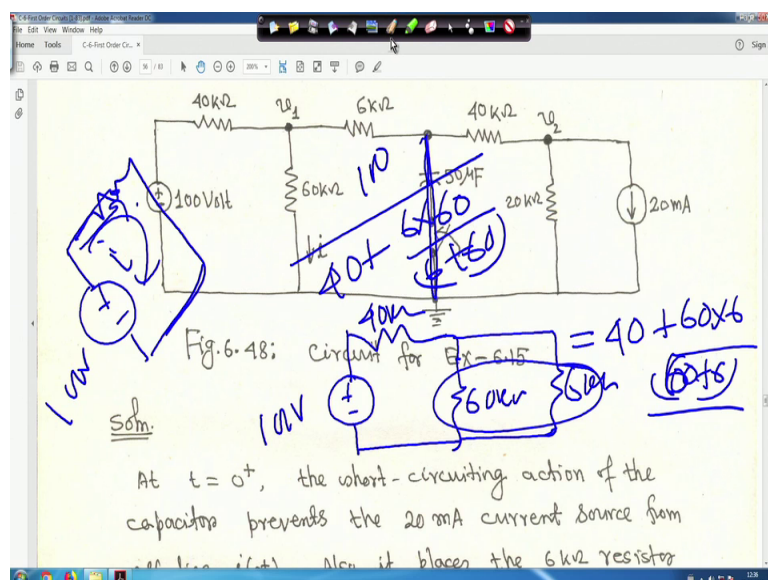 C-6-First Order Circuits [1-83].pdf - Adobe Acrobat Reader DC
File Edit View Window Help
Home Tools C-6-First Order Cir... × Sign
56 / 83 200%
40kΩ v1 6kΩ 40kΩ v2
100Volt 60kΩ 50μF 20kΩ 20mA
i
100
40+ 6×60
(6+60)
100V
Fig. 6.48: Circuit for Ex-6.15
40k
100V 60k 6k
= 40 + 60×6
(60+6)
Soln.
At t = 0+, the short-circuiting action of the
capacitor prevents the 20 mA current source from
Also it places the 6kΩ resistor
12:36